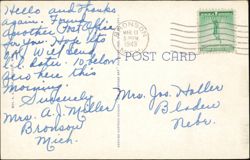 Hello and Thanks
again. Found
another Post Office
for you. Hope it's
OK. Will send
L.L. later. 10 below
zero here this
morning.
Sincerely
Mrs. A. J. Miller
Bronson
Mich.
BRONSON
MAR 11
5 PM
1943
MICH.
POST CARD
Mrs. Jos. Haller
Bladen
Nebr.